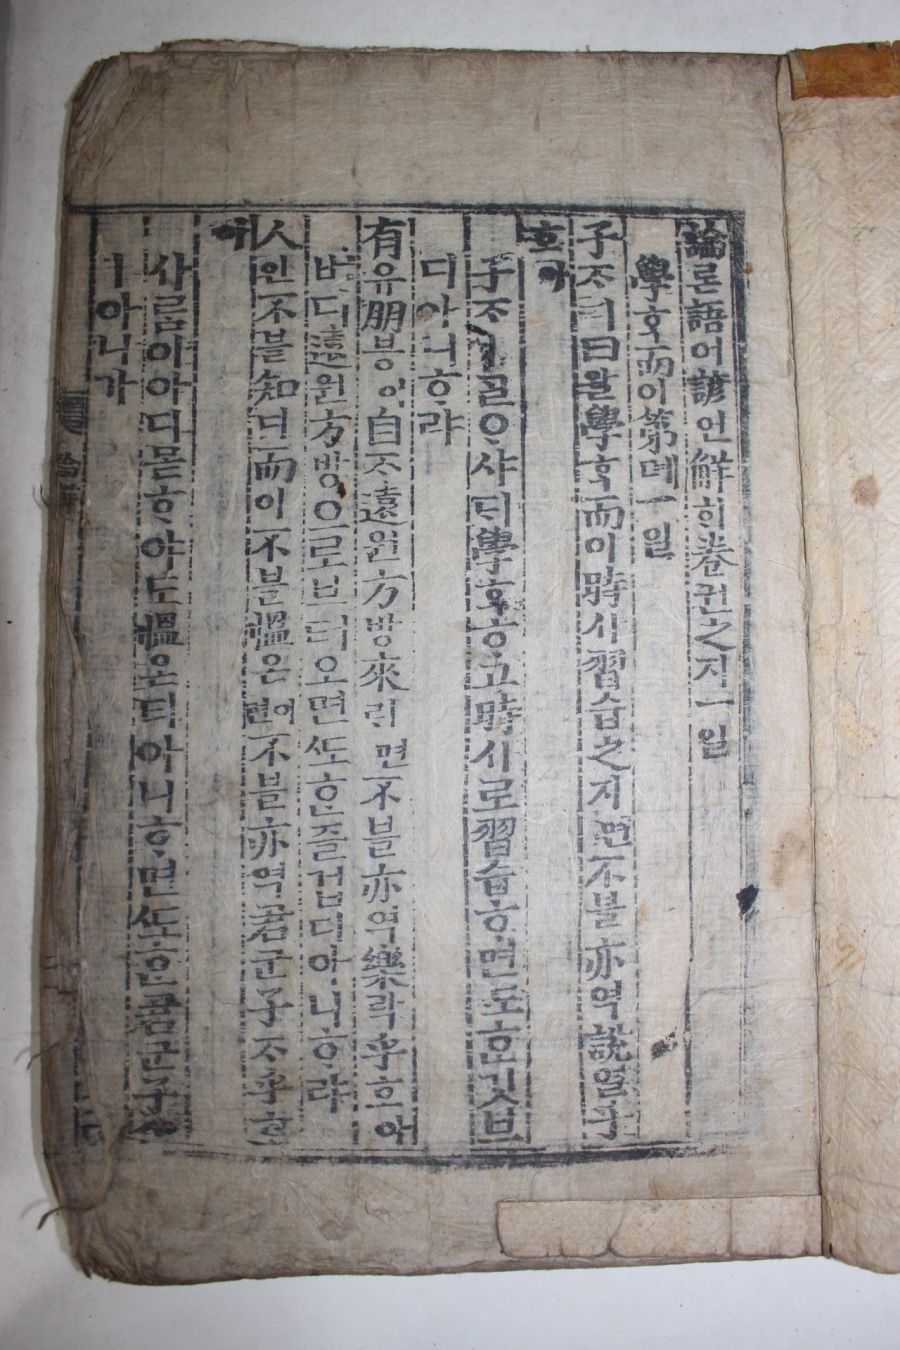 論론語어諺언觧ᄒᆡ卷권之지一일
學ᄒᆞᆨ而이第뎨一일
子ᄌᆞㅣ曰왈學ᄒᆞᆨ而이時시習습之지면不블亦역說열乎
호아
子ᄌᆞㅣᄀᆞᆯᄋᆞ샤ᄃᆡ學ᄒᆞᆨᄒᆞ고時시로習습ᄒᆞ면ᄯᅩᄒᆞᆫ깃브
디아니ᄒᆞ랴
有유朋붕이自ᄌᆞ遠원方방來ᄅᆡ면不블亦역樂락乎호아
버디遠원方방으로브터오면ᄯᅩᄒᆞᆫ즐겁디아니ᄒᆞ랴
人인不블知디而이不블慍온이면不블亦역君군子ᄌᆞ乎호
아
사ᄅᆞᆷ이아디몯ᄒᆞ야도慍온티아니ᄒᆞ면ᄯᅩᄒᆞᆫ君군子ᄌᆞ
ㅣ아니가